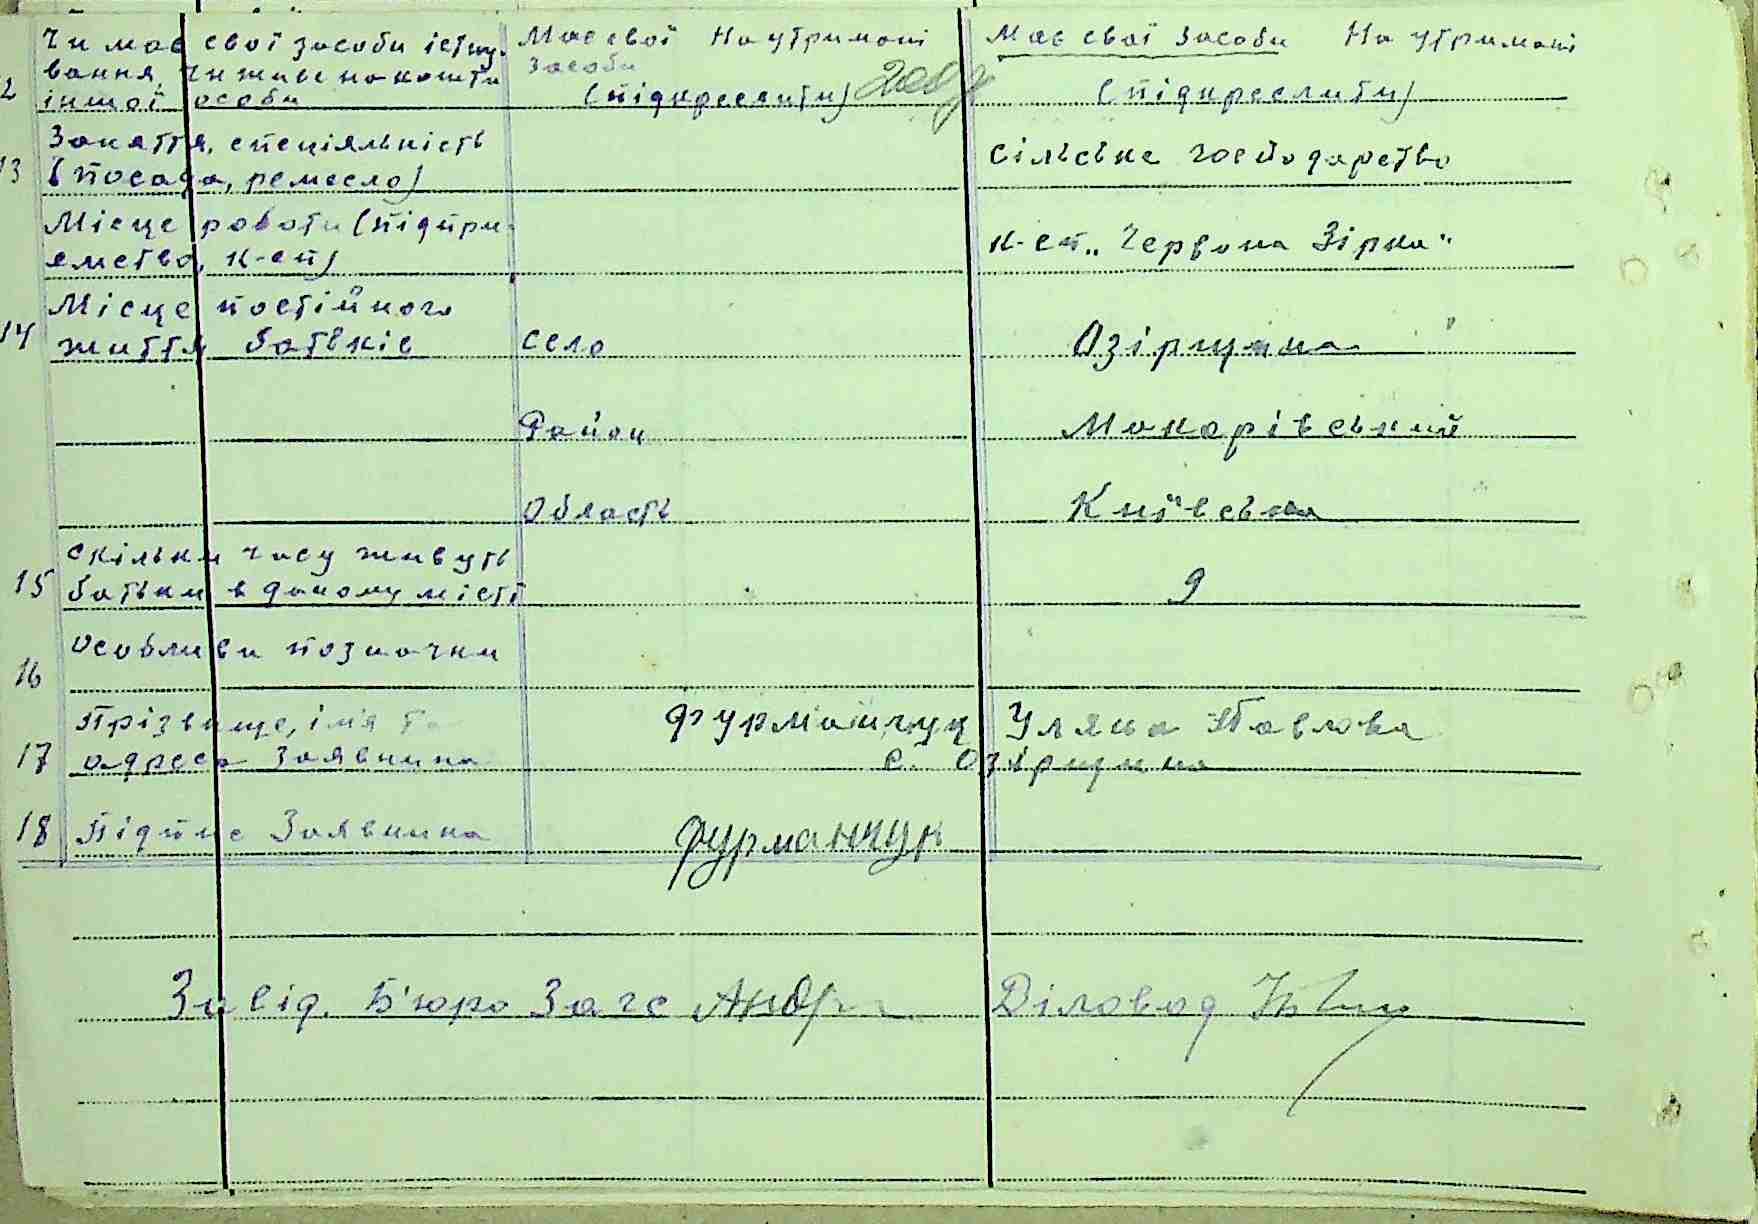 Чи має свої засоби істну- Має свої На утримані Має свої засоби На утримані
вання, чи живе на кошти засоби
12 іншої особи (підкреслити) (підкреслити)
Заняття, специяльність
13 (посада, ремесло) сільське господарство
Місце роботи (підпри-
ємство, к-сп) к-сп „Червона Зірка"
Місце постійного
14 життя батьків село Озірщина
Район Макарівський
Область Київська
скільки часу живуть
15 батьки в даному місті 9
16 особливи позначки
Прізвище, ім'я та Фурманчук Уляна Павлова
17 адреса Заявника с. Озірщина
18 Підпис Заявника Фурманчук
Завід. Бюро Загс Діловод